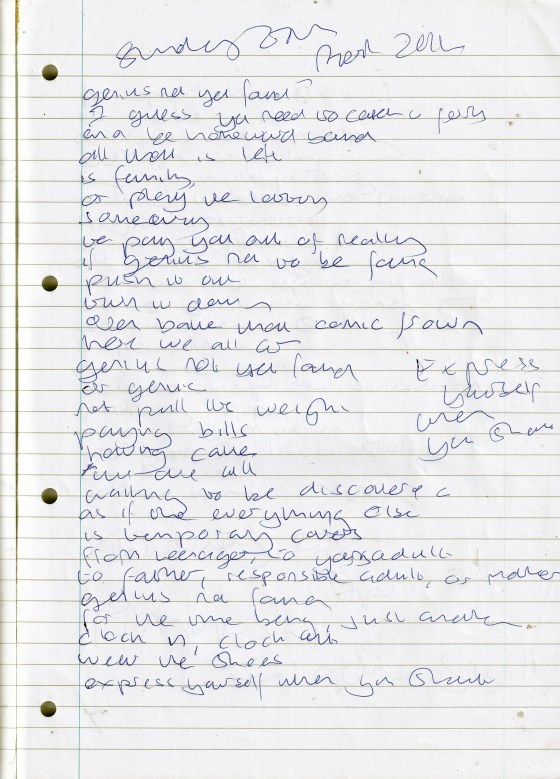 genius not yet found?
I guess ya need to catch a ferry
and be homeward bound
all that is left
is family
or
someway
to pay you out of reality
if genius not to be found
push it out
turn it down
comic frown
here we all are
genius not yet found
or genie
not pull its weight
paying bills
having
all
waiting to be discovered
as if the everything else
is temporary covers
from teenager, to young adult
to father, responsible adult, or mother
genius not found
for the time being, just another
clock in, clock out
wear the shoes
express yourself when you
Express
yourself
when
you